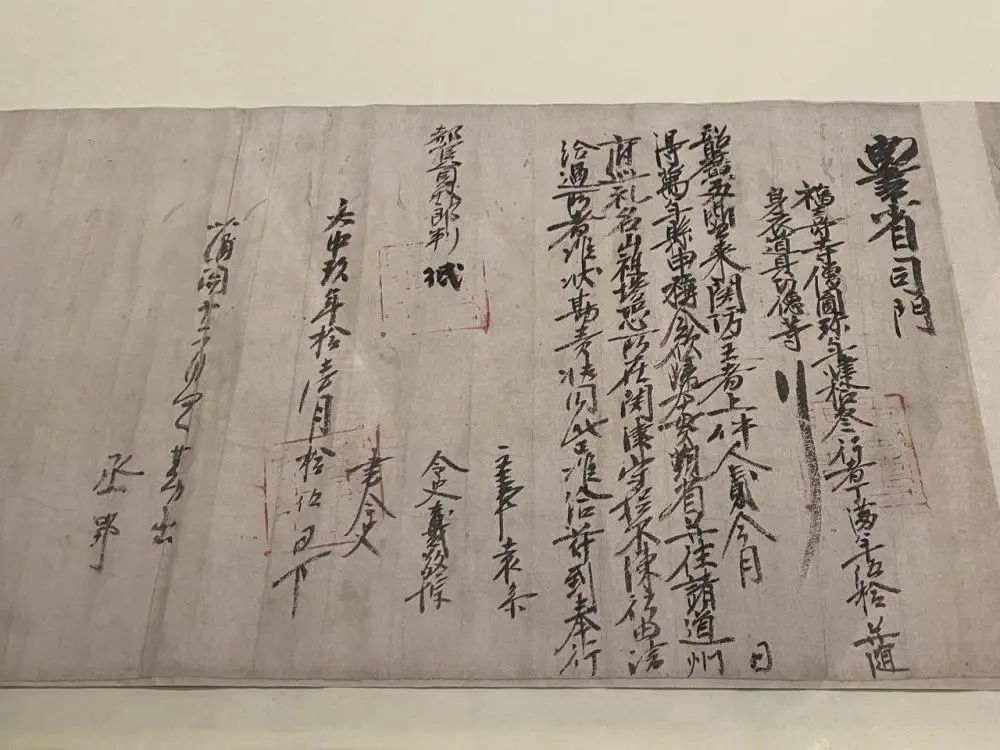 尚書省司門
福壽寺僧圓珍年肆拾叁行者丁滿年伍拾並隨
身衣道具功德等
韶廣兩浙已來關防主者上件人貳今月 日
得萬年縣申稱今欲歸本貫覲省并往諸道州
府巡礼名山祖塔恐所在關津守捉不練行由請
給過所者准狀勘責狀同此正准給符到奉行
主事袁參
都官員外郎判祇 令史戴敬悰
書令史
大中玖年拾壹月拾伍日下
蒲關十二月四日勘出
丞郢